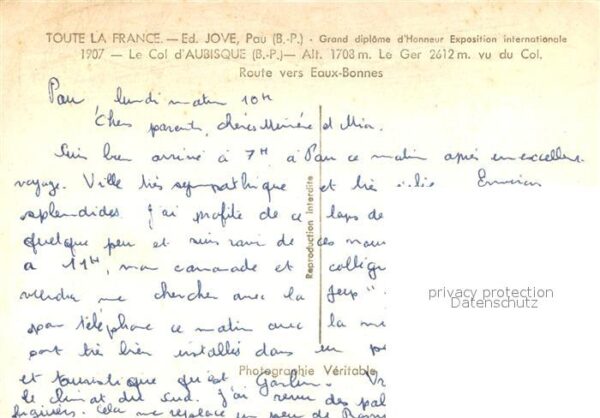 TOUTE LA FRANCE. — Ed. JOVE, Pau (B.-P.) - Grand diplôme d'Honneur Exposition internationale
1907 — Le Col d'AUBISQUE (B.-P.) — Alt. 1708 m. Le Ger 2612 m. vu du Col.
Route vers Eaux-Bonnes
Pau, lundi matin 10H
Chers parents, chères et
Suis bien arrivé à 7H à Pau ce matin après un excellent
voyage. Ville très sympathique et très jolie. Environs
splendides. J'ai profité de ce laps de
quelque peu et suis ravi de ces nou
à 11H, mon camarade et collègue
viendra me chercher avec la "Jeep"
par téléphone ce matin avec la
sont très bien installés dans un
et touristique qu'est Garlin.
le climat du Sud. J'ai revu des pal
un peu de
Reproduction interdite
Photographie Véritable
privacy protection
Datenschutz